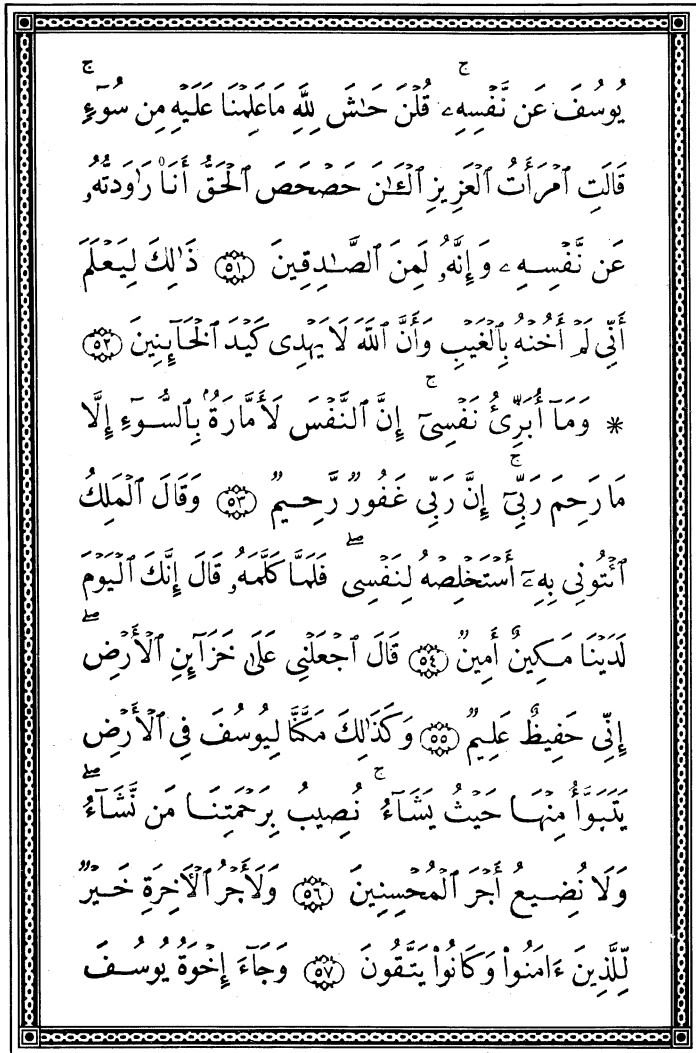 يُوسُفَ عَن نَّفْسِهِۦۚ قُلْنَ حَٰشَ لِلَّهِ مَا عَلِمْنَا عَلَيْهِ مِن سُوٓءٍۚ
قَالَتِ ٱمْرَأَتُ ٱلْعَزِيزِ ٱلْـَٰٔنَ حَصْحَصَ ٱلْحَقُّ أَنَا۠ رَٰوَدتُّهُۥ
عَن نَّفْسِهِۦ وَإِنَّهُۥ لَمِنَ ٱلصَّٰدِقِينَ ﴿٥١﴾ ذَٰلِكَ لِيَعْلَمَ
أَنِّى لَمْ أَخُنْهُ بِٱلْغَيْبِ وَأَنَّ ٱللَّهَ لَا يَهْدِى كَيْدَ ٱلْخَآئِنِينَ ﴿٥٢﴾
* وَمَآ أُبَرِّئُ نَفْسِىٓۚ إِنَّ ٱلنَّفْسَ لَأَمَّارَةٌۢ بِٱلسُّوٓءِ إِلَّا
مَا رَحِمَ رَبِّىٓۚ إِنَّ رَبِّى غَفُورٌ رَّحِيمٌ ﴿٥٣﴾ وَقَالَ ٱلْمَلِكُ
ٱئْتُونِى بِهِۦٓ أَسْتَخْلِصْهُ لِنَفْسِىۖ فَلَمَّا كَلَّمَهُۥ قَالَ إِنَّكَ ٱلْيَوْمَ
لَدَيْنَا مَكِينٌ أَمِينٌ ﴿٥٤﴾ قَالَ ٱجْعَلْنِى عَلَىٰ خَزَآئِنِ ٱلْأَرْضِۖ
إِنِّى حَفِيظٌ عَلِيمٌ ﴿٥٥﴾ وَكَذَٰلِكَ مَكَّنَّا لِيُوسُفَ فِى ٱلْأَرْضِ
يَتَبَوَّأُ مِنْهَا حَيْثُ يَشَآءُۚ نُصِيبُ بِرَحْمَتِنَا مَن نَّشَآءُۖ
وَلَا نُضِيعُ أَجْرَ ٱلْمُحْسِنِينَ ﴿٥٦﴾ وَلَأَجْرُ ٱلْءَاخِرَةِ خَيْرٌ
لِّلَّذِينَ ءَامَنُوا۟ وَكَانُوا۟ يَتَّقُونَ ﴿٥٧﴾ وَجَآءَ إِخْوَةُ يُوسُفَ